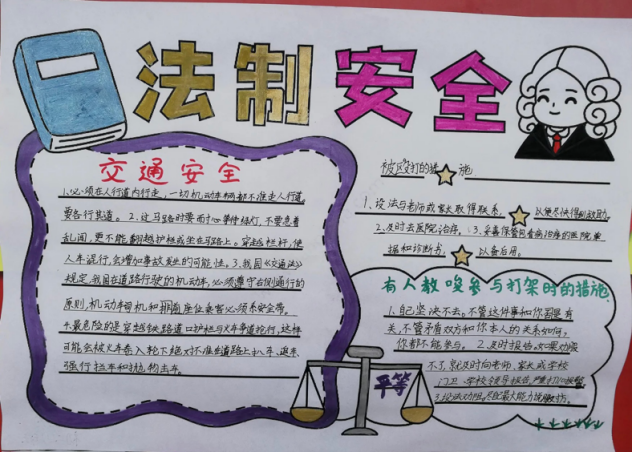 法制安全
交通安全
1.必须在人行道内行走,一切机动车辆都不准走人行道,
要各行其道。2.过马路时要耐心等待绿灯,不要急着
乱闯,更不能翻越护栏或坐在马路上。穿越栏杆,使
人车混行,会增加事故发生的可能性。3.我国《交通法》
规定,我国在道路行驶的机动车,必须遵守右侧通行的
原则,机动车司机和前面座位乘客必须系安全带。
4.最危险的是穿越铁路道口护栏与火车争道抢行,这样
可能会被火车卷入轮下绝对不准在道路上扒车、追车
强行拦车和抛物击车。
被殴打的措施
1.设法与老师或家长取得联系,以便尽快得到救助。
2.及时去医院治疗,3.妥善保管包括病治疗的医院单
据和诊断书,以备后用。
有人教唆参与打架时的措施
1.自己坚决不去。不管这件事和你有没有
关,不管矛盾双方和你本人的关系如何,
你都不能参与。2.及时报告。如果劝阻
不了,就及时向老师、家长或学校
门卫、学校领导报告,
3.设法劝阻。尽最大能力
平等